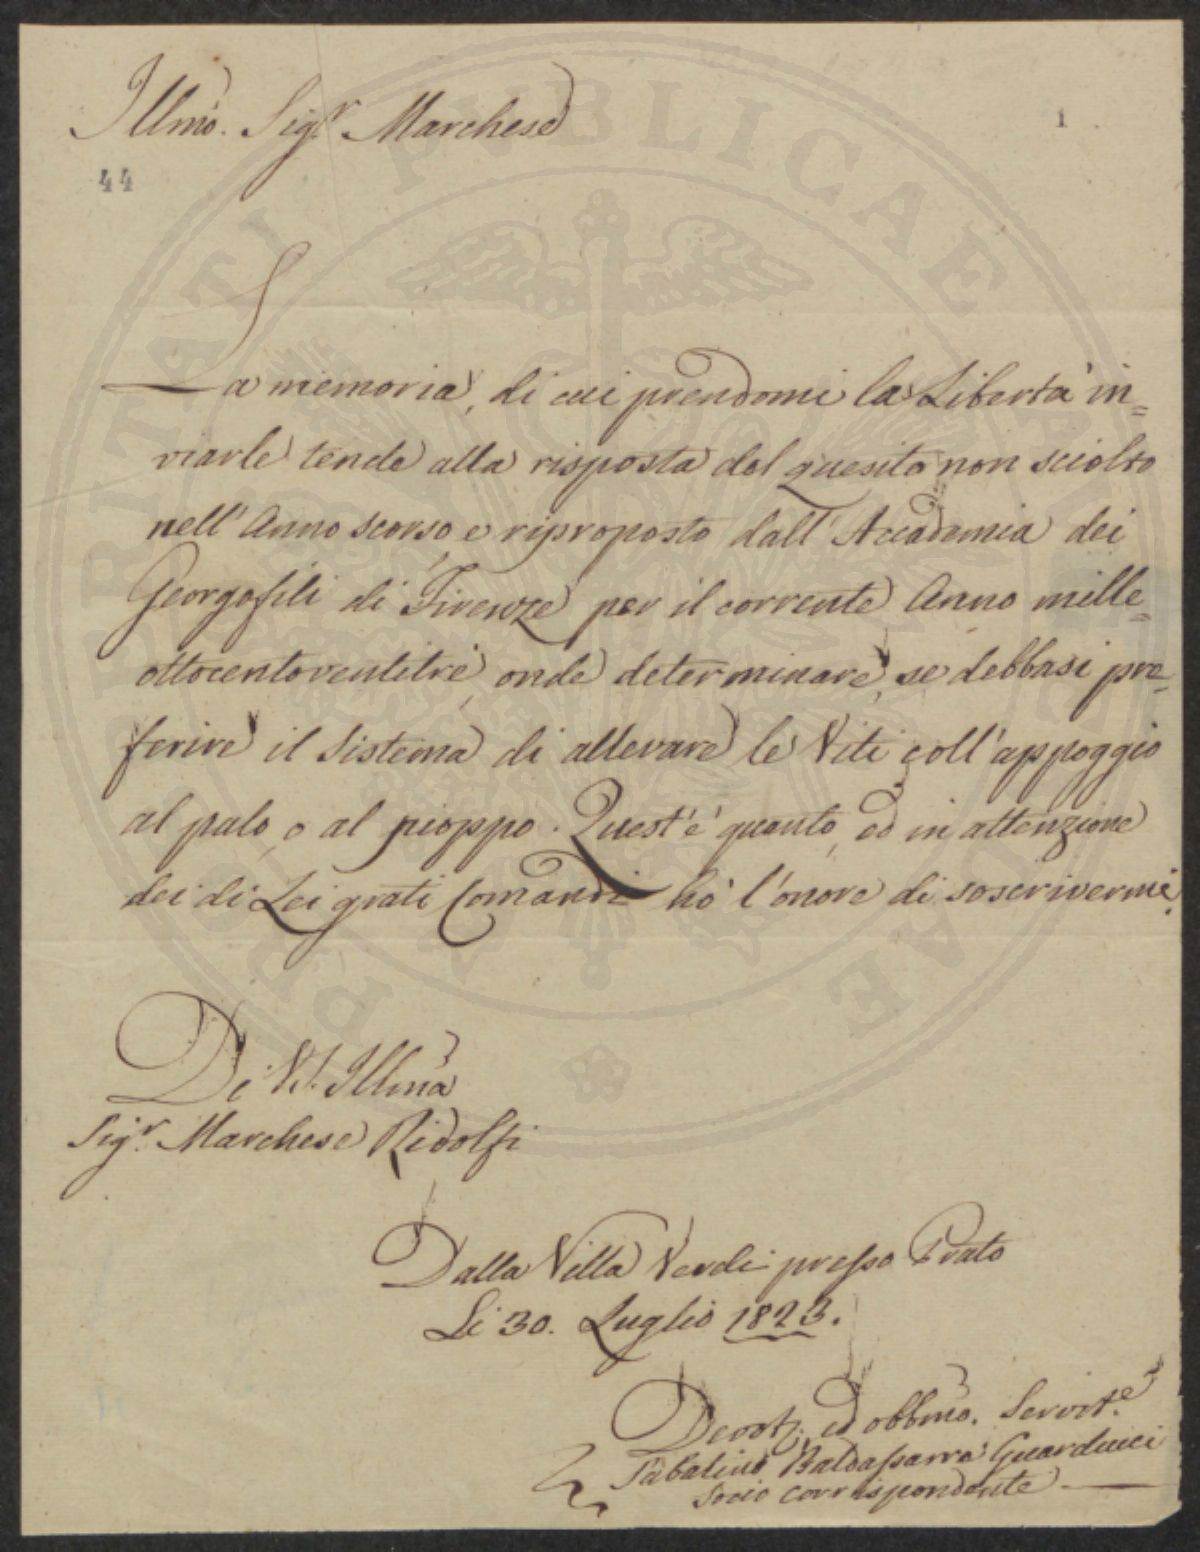 Illmo. Sigr. Marchese
1
44
La memoria, di cui prendomi la Libertà in=
viarle tende alla risposta del quesito non sciolto
nell'Anno scorso e riproposto dall'Accademia dei
Georgofili di Firenze per il corrente Anno mille=
ottocentoventitrè, onde determinare, se debbasi pre=
ferire il Sistema di allevare le Viti coll'appoggio
al palo, o al pioppo. Quest'è quanto, ed in attenzione
dei di Lei grati Comandi ho' l'onore di soscrivermi.
Di V.S. Illma
Sigr. Marchese Ridolfi
Dalla Villa Verdi presso Prato
Li 30. Luglio 1823.
ed obbmo. Servit.e
Baldassarre Guarducci
Socio corrispondente
PUBLICAE